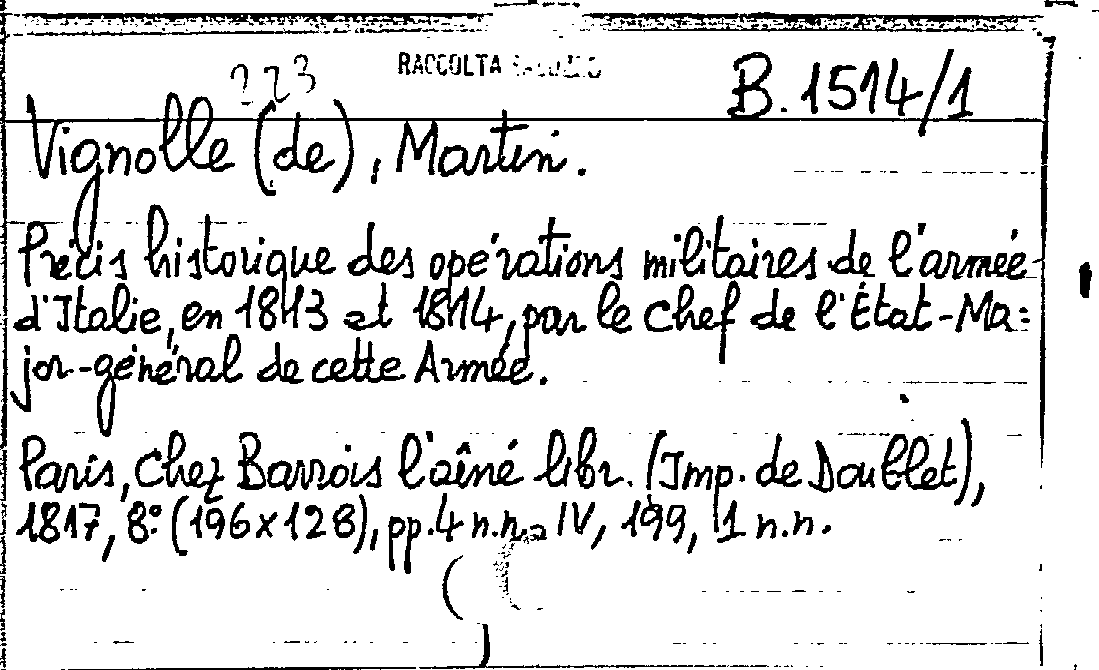 223
RACCOLTA
B. 1514/1
Vignolle (de), Martin.
Précis historique des opérations militaires de l'armée
d'Italie, en 1813 et 1814, par le chef de l'État-Ma=
jor-général de cette Armée.
Paris, chez Barrois l'aîné libr. (Imp. de Doublet),
1817, 8° (196x128), pp. 4 n.n., IV, 199, 1 n.n.